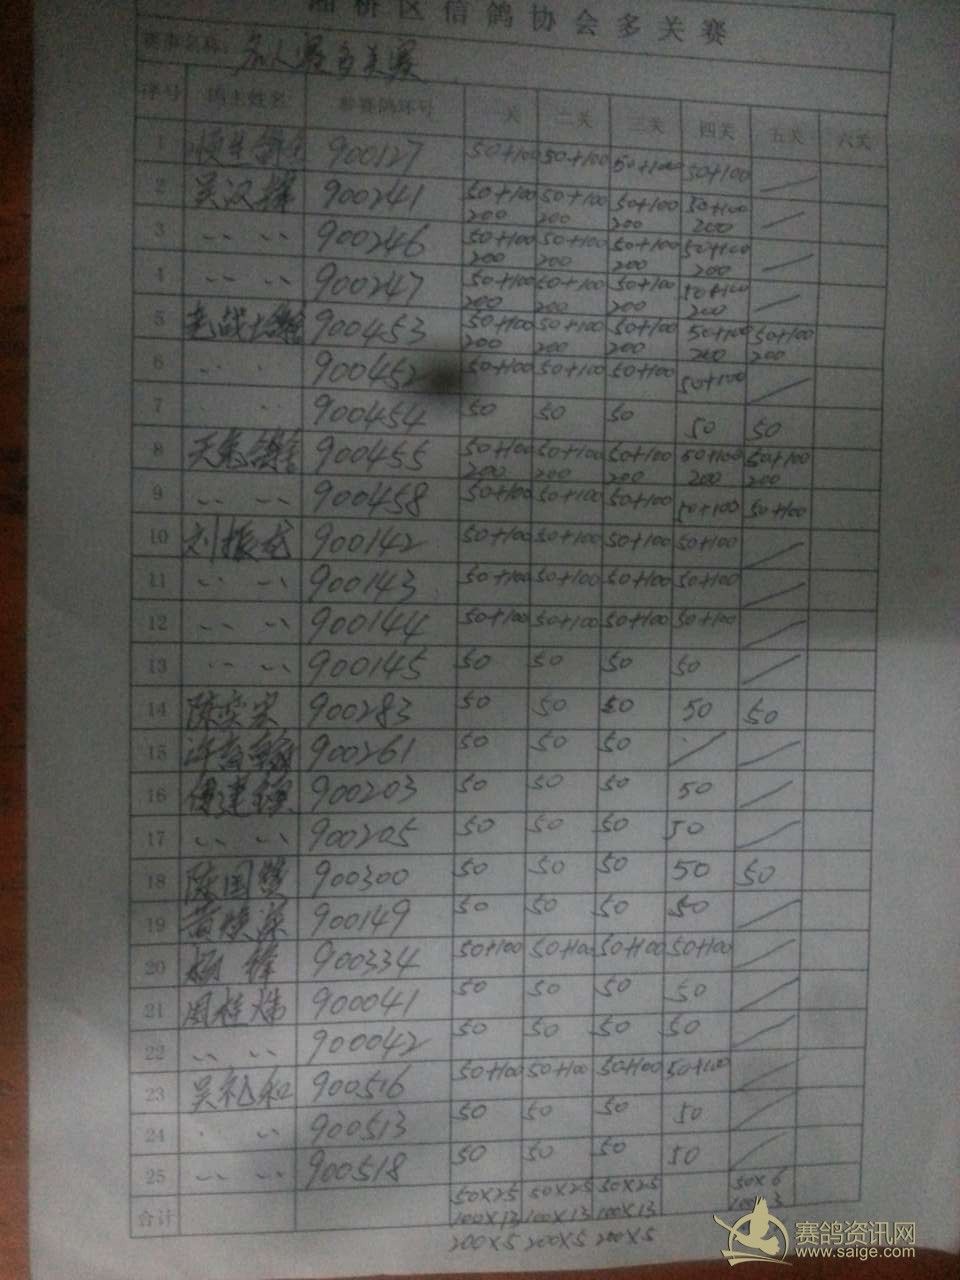 湘桥区信鸽协会多关赛
赛事名称: 多关赛
序号 鸽主姓名 参赛鸽环号 一关 二关 三关 四关 五关 六关
1 900127 50+100 50+100 50+100 50+100 /
2 吴汉 900241 50+100 200 50+100 200 50+100 200 50+100 200 /
3 〃 〃 900246 50+100 200 50+100 200 50+100 200 50+100 200 /
4 〃 〃 900247 50+100 200 50+100 200 50+100 200 50+100 200 /
5 900453 50+100 200 50+100 200 50+100 200 50+100 200 50+100 200
6 〃 〃 900452 50+100 50+100 50+100 50+100 /
7 〃 〃 900454 50 50 50 50 50
8 900455 50+100 200 50+100 200 50+100 200 50+100 200 50+100 200
9 〃 〃 900458 50+100 50+100 50+100 50+100 50+100
10 刘振 900142 50+100 50+100 50+100 50+100 /
11 〃 〃 900143 50+100 50+100 50+100 50+100 /
12 〃 〃 900144 50+100 50+100 50+100 50+100 /
13 〃 〃 900145 50 50 50 50 /
14 陈 900283 50 50 50 50 50
15 900261 50 50 50 / /
16 900203 50 50 50 50 /
17 〃 〃 900205 50 50 50 50 /
18 陈国 900300 50 50 50 50 50
19 黄 900149 50 50 50 50 /
20 杨 900334 50+100 50+100 50+100 50+100 /
21 周桂 900041 50 50 50 50 /
22 〃 〃 900042 50 50 50 50 /
23 吴礼和 900516 50+100 50+100 50+100 50+100 /
24 〃 〃 900513 50 50 50 50 /
25 〃 〃 900518 50 50 50 50 /
合计 50×25 50×25 50×25 50×6
100×13 100×13 100×13 100×3
200×5 200×5 200×5
赛鸽资讯网
www.saige.com